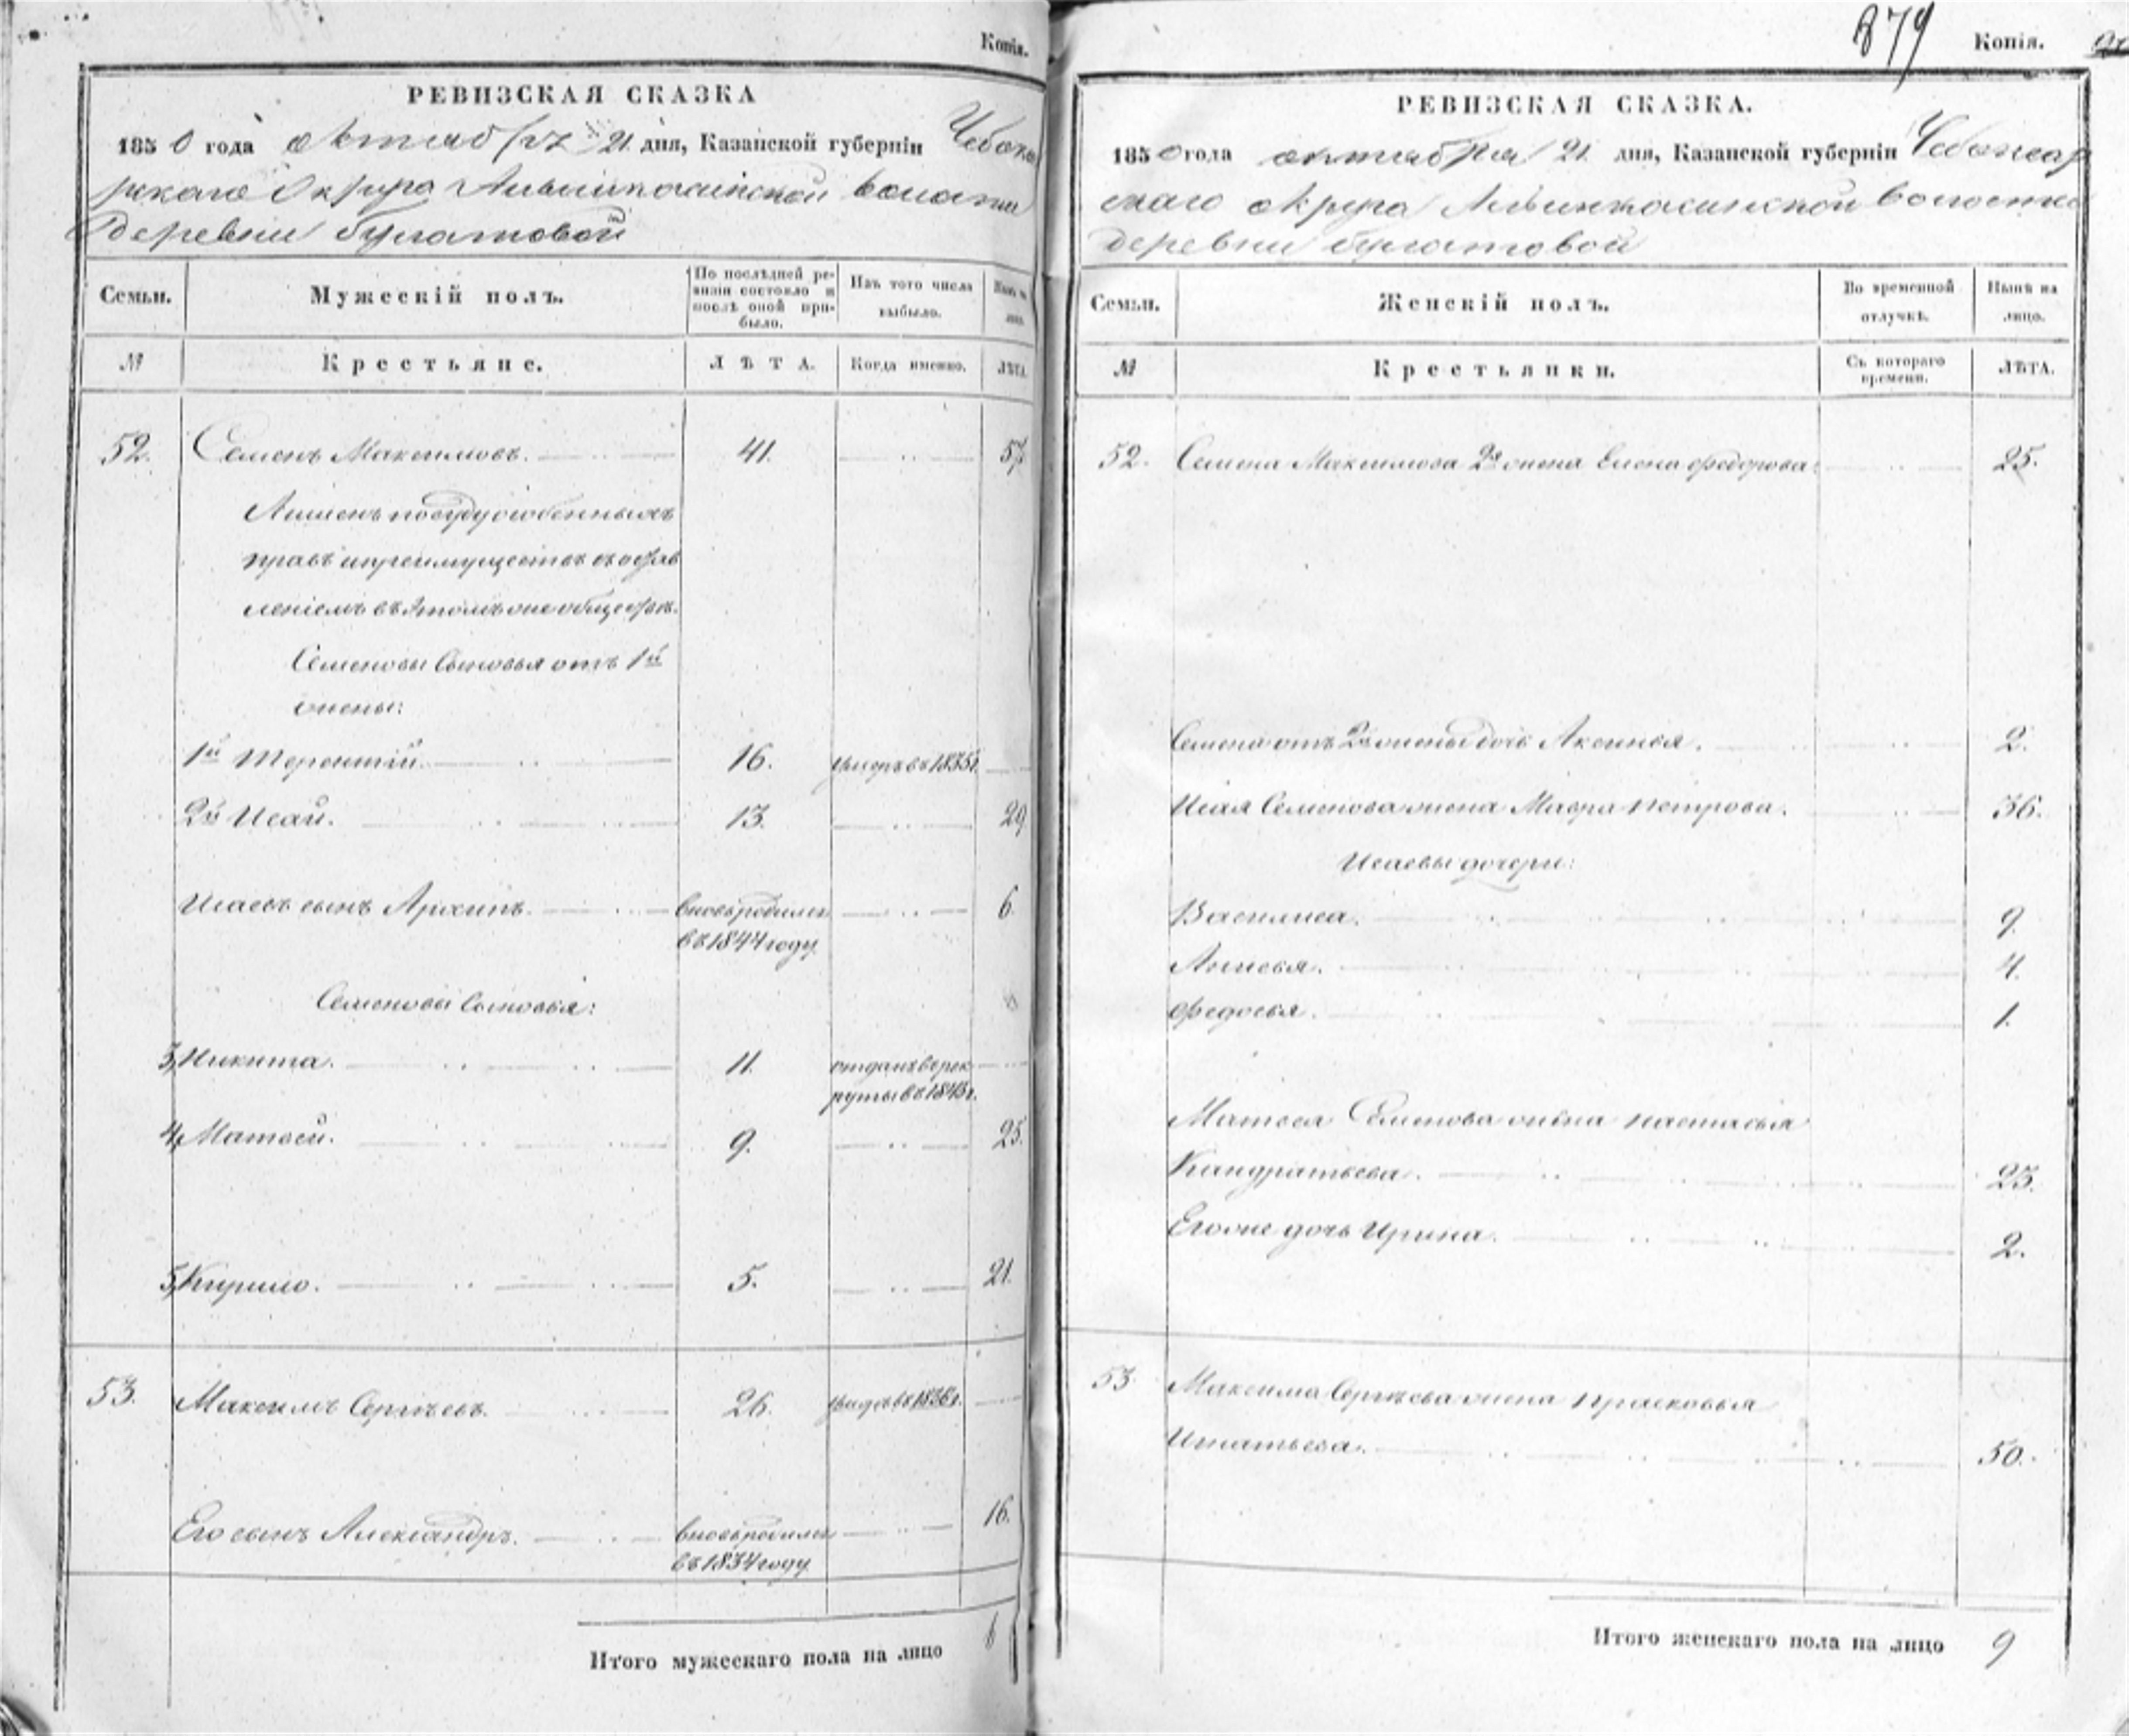 Копія.
РЕВИЗСКАЯ СКАЗКА
1850 года октября 21 дня, Казанской губерніи Чебокса
рскаго Округа волости
деревни Булатовой
Семьи.
Мужескій полъ.
По послѣдней ре-
визіи состояло и
послѣ оной при-
было.
Изъ того числа
выбыло.
Нынѣ на
лицо.
№
Крестьяне.
ЛѢТА.
Когда именно.
ЛѢТА.
52. Семенъ Максимовъ. 41. 57
Лишенъ по суду особенныхъ
правъ и преимуществъ съ остав
леніемъ въ этомъ же обществѣ.
Семеновы сыновья отъ 1й
жены:
1й Терентій. 16. умеръ въ 1835г.
2й Исай. 13. 29
Исаевъ сынъ Архипъ. вновь родился 6.
въ 1844 году
Семеновы сыновья:
3, Никита. 11. отданъ в рек
руты въ 1843г.
4, Матвей. 9. 25.
5, Кирило. 5. 21.
53. Максимъ Сергѣевъ. 26. умеръ въ 1836г.
Его сынъ Александръ. вновь родился 16.
въ 1834 году
Итого мужескаго пола на лицо 6
879
Копія.
РЕВИЗСКАЯ СКАЗКА.
1850 года октября 21 дня, Казанской губерніи Чебоксар
скаго округа волости
деревни Булатовой
Семьи.
Женскій полъ.
Во временной
отлучкѣ.
Нынѣ на
лицо.
№
Крестьянки.
Съ котораго
времени.
ЛѢТА.
52. Семена Максимова 2я жена Елена Федорова. 25.
Семена отъ 2й жены дочь Аксинья. 2.
Исая Семенова жена Мавра Петрова. 36.
Исаевы дочери:
Василиса. 9
Анисья. 4.
Федосья. 1.
Матвея Семенова жена Настасья
Кандратьева. 23.
Его же дочь Ирина. 2.
53 Максима Сергѣева жена Прасковья
Игнатьева. 50.
Итого женскаго пола на лицо 9